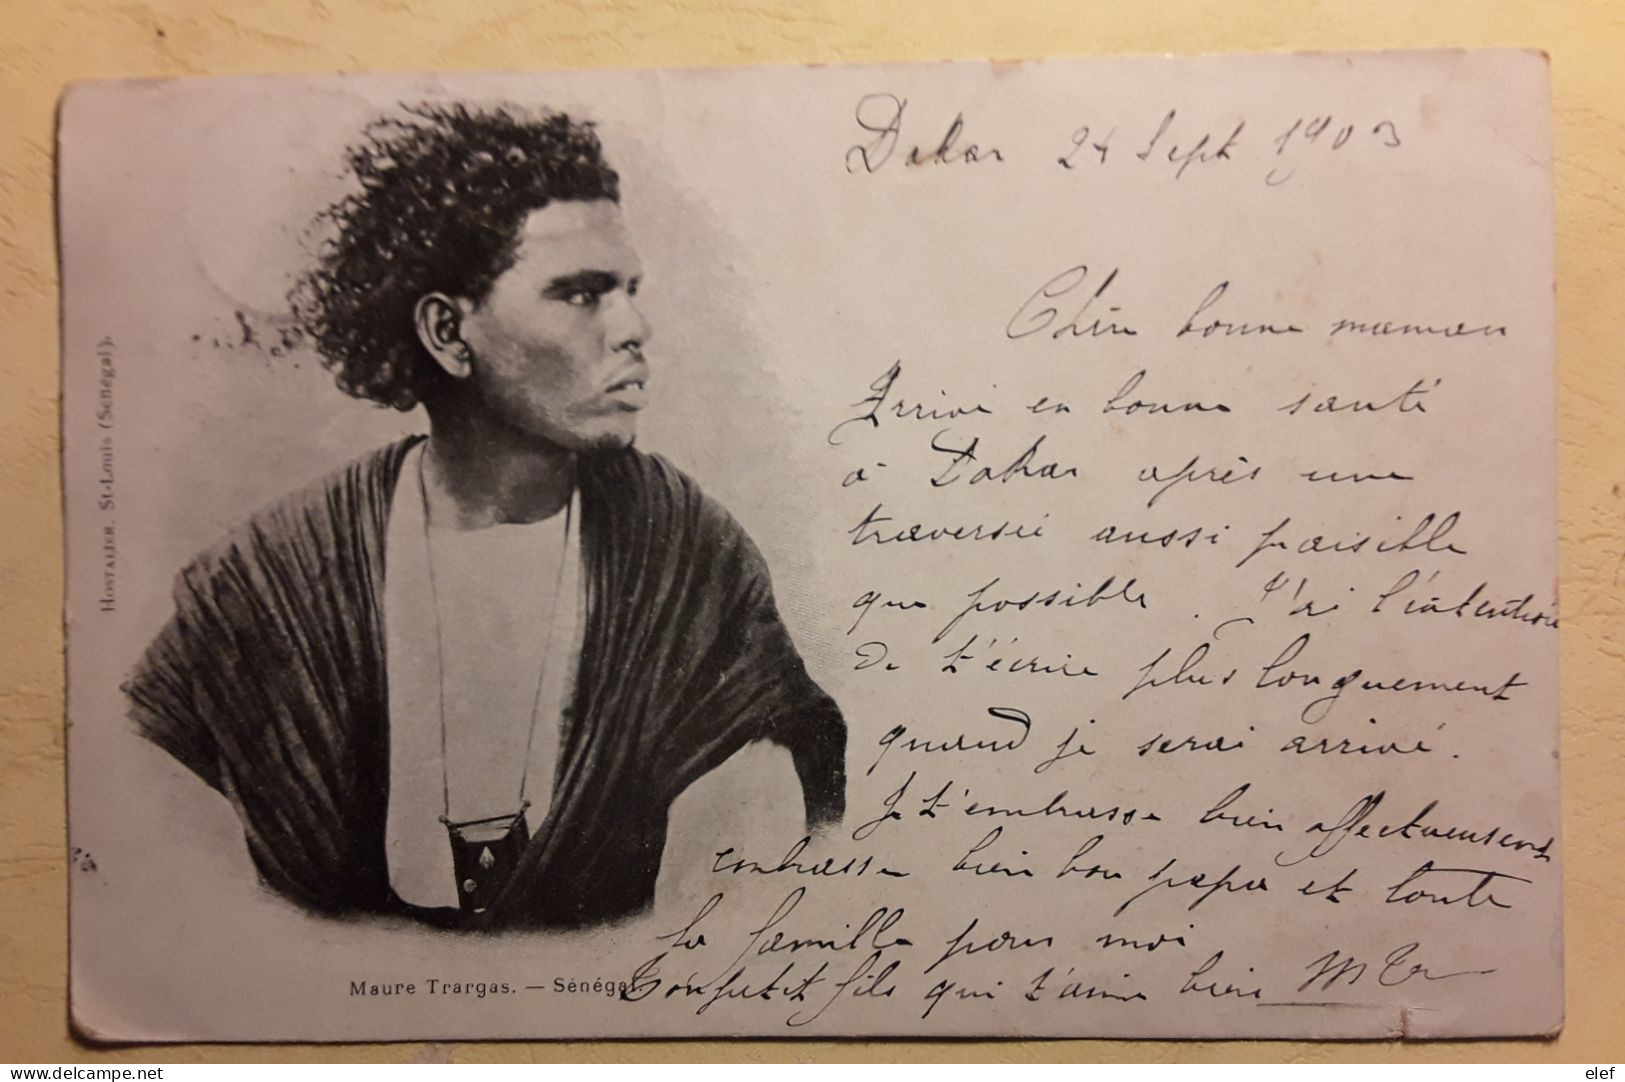 Dakar 24 Sept 1903
Chère bonne maman
Arrivé en bonne santé
à Dakar après une
traversée aussi paisible
que possible. J'ai l'intention
de t'écrire plus longuement
quand je serai arrivé.
Je t'embrasse bien affectueusement
embrasse bien bon papa et toute
la famille pour moi
petit fils qui t'aime bien
Maure Trargas. — Sénégal.
HOSTALIER. St-Louis (Sénégal).
www.delcampe.net
elef